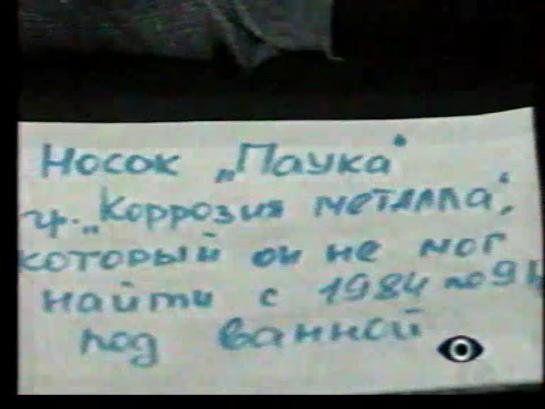 Носок „Паука“
гр. „Коррозия металла“,
который он не мог
найти с 1984 по
под ванной